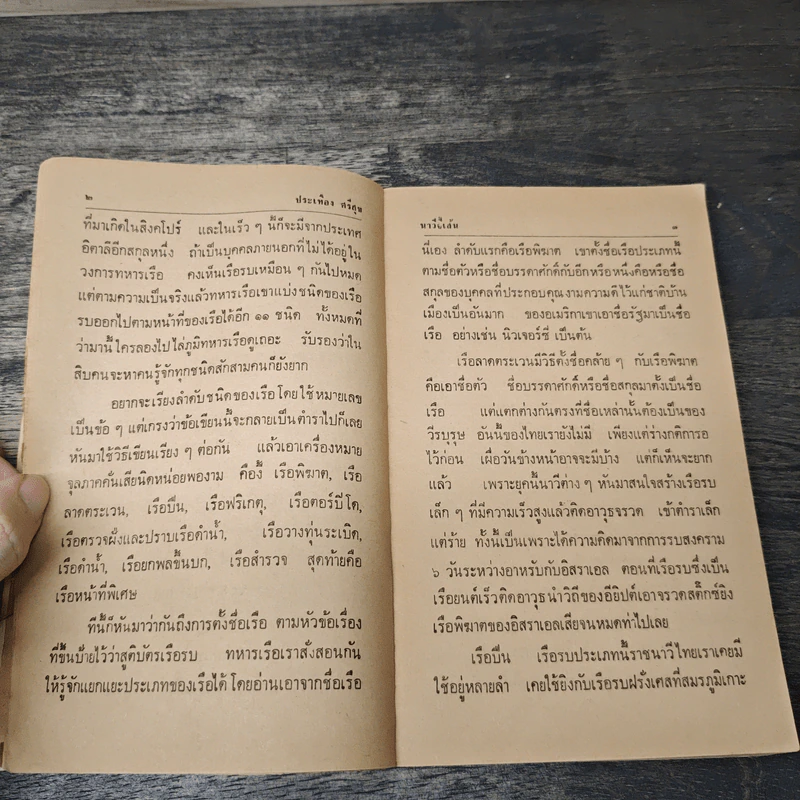 ๒ ประเทือง ศรีสุข
ที่มาเกิดในสิงคโปร์ และในเร็ว ๆ นี้ก็จะมีจากประเทศ
อิตาลีอีกสกุลหนึ่ง ถ้าเป็นบุคคลภายนอกที่ไม่ได้อยู่ใน
วงการทหารเรือ คงเห็นเรือรบเหมือน ๆ กันไปหมด
แต่ตามความเป็นจริงแล้วทหารเรือเขาแบ่งชนิดของเรือ
รบออกไปตามหน้าที่ของเรือได้อีก ๑๑ ชนิด ทั้งหมดที่
ว่ามานี้ใครลองไปไล่ภูมิทหารเรือดูเถอะ รับรองว่าใน
สิบคนจะหาคนรู้จักทุกชนิดสักสามคนก็ยังยาก
อยากจะเรียงลำดับชนิดของเรือโดยใช้หมายเลข
เป็นข้อ ๆ แต่เกรงว่าข้อเขียนนี้จะกลายเป็นตำราไปก็เลย
หันมาใช้วิธีเขียนเรียง ๆ ต่อกัน แล้วเอาเครื่องหมาย
จุลภาคคั่นเสียนิดหน่อยพองาม คือมี เรือพิฆาต, เรือ
ลาดตระเวน, เรือปืน, เรือฟริเกต, เรือตอร์ปิโด,
เรือตรวจฝั่งและปราบเรือดำน้ำ, เรือวางทุ่นระเบิด,
เรือดำน้ำ, เรือยกพลขึ้นบก, เรือสำรวจ สุดท้ายคือ
เรือหน้าที่พิเศษ
ทีนี้ก็หันมาว่ากันถึงการตั้งชื่อเรือ ตามหัวข้อเรื่อง
ที่ขึ้นป้ายไว้ว่าสูติบัตรเรือรบ ทหารเรือเราสั่งสอนกัน
ให้รู้จักแยกแยะประเภทของเรือได้ โดยอ่านเอาจากชื่อเรือ
นาวีนี้เล่น ๓
นี่เอง ลำดับแรกคือเรือพิฆาต เขาตั้งชื่อเรือประเภทนี้
ตามชื่อตัวหรือชื่อบรรดาศักดิ์กับอีกหรือหนึ่งคือหรือชื่อ
สกุลของบุคคลที่ประกอบคุณงามความดีไว้แก่ชาติบ้าน
เมืองเป็นอันมาก ของอเมริกาเขาเอาชื่อรัฐมาเป็นชื่อ
เรือ อย่างเช่น นิวเจอร์ซี่ เป็นต้น
เรือลาดตระเวนมีวิธีตั้งชื่อคล้าย ๆ กับเรือพิฆาต
คือเอาชื่อตัว ชื่อบรรดาศักดิ์หรือชื่อสกุลมาตั้งเป็นชื่อ
เรือ แต่แตกต่างกันตรงที่ชื่อเหล่านั้นต้องเป็นของ
วีรบุรุษ อันนี้ของไทยเรายังไม่มี เพียงแต่ร่างกติการอ
ไว้ก่อน เผื่อวันข้างหน้าอาจจะมีบ้าง แต่ก็เห็นจะยาก
แล้ว เพราะยุคนี้นาวีต่าง ๆ หันมาสนใจสร้างเรือรบ
เล็ก ๆ ที่มีความเร็วสูงแล้วติดอาวุธจรวด เข้าตำราเล็ก
แต่ร้าย ทั้งนี้เป็นเพราะได้ความคิดมาจากการรบสงคราม
๖ วันระหว่างอาหรับกับอิสราเอล ตอนที่เรือรบซึ่งเป็น
เรือยนต์เร็วติดอาวุธนำวิถีของอียิปต์เอาจรวดสติ๊กซ์ยิง
เรือพิฆาตของอิสราเอลเสียจนหมดท่าไปเลย
เรือปืน เรือรบประเภทนี้ราชนาวีไทยเราเคยมี
ใช้อยู่หลายลำ เคยใช้ยิงกับเรือรบฝรั่งเศสที่สมรภูมิเกาะ